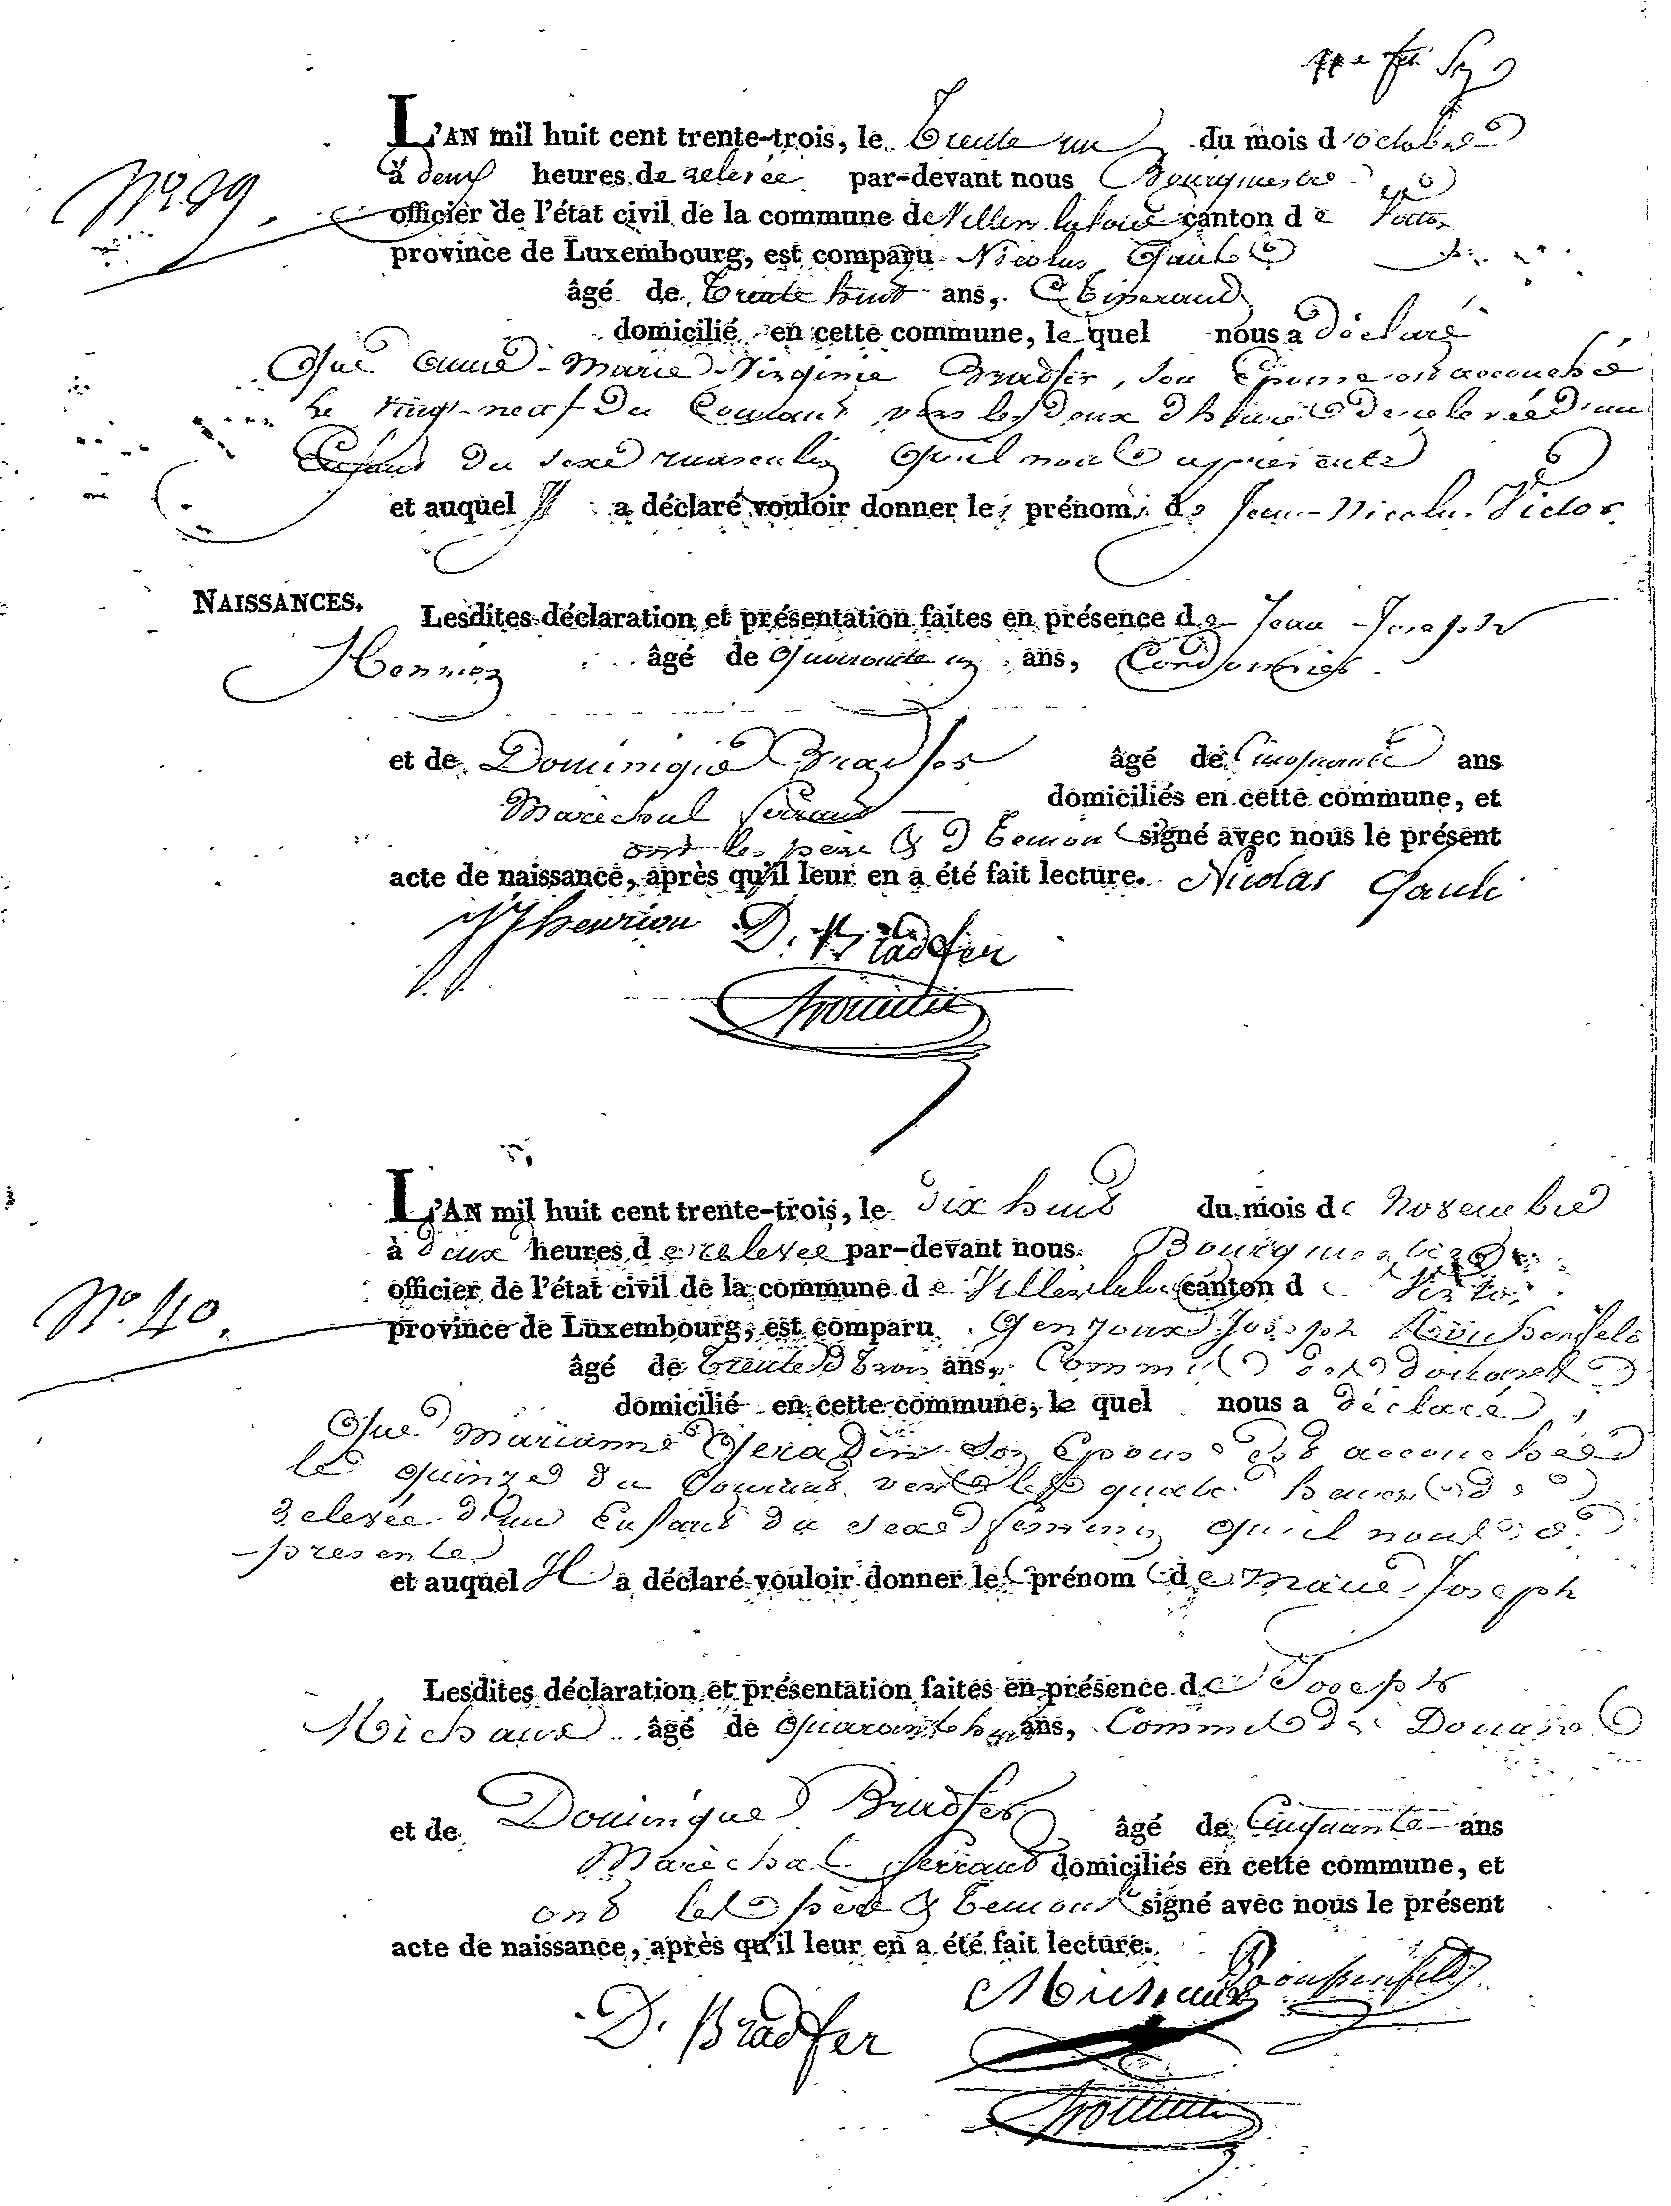 L'AN mil huit cent trente-trois, le Trente un du mois d'octobre
N° 39.
à deux heures de relevée par-devant nous Bourgmestre
officier de l'état civil de la commune de Villers la loue canton de Virton
province de Luxembourg, est comparu Nicolas Gauli
âgé de Trente huit ans, Tisserand
domicilié en cette commune, le quel nous a déclaré
Que Anne-Marie-Virginie Bradfer, son Epouse est accouchée
le vingt-neuf du Courant vers les deux d'heures de relevée d'un
Enfant du sexe masculin qu'il nous a présenté
et auquel Il a déclaré vouloir donner les prénoms de Jean-Nicolas Victor
NAISSANCES.
Lesdites déclaration et présentation faites en présence de Jean-Joseph
Henrion âgé de Quarante un ans, Cordonnier
et de Dominique Bradfer âgé de Cinquante ans
Maréchal ferrant domiciliés en cette commune, et
ont les père & témoins signé avec nous le présent
acte de naissance, après qu'il leur en a été fait lecture. Nicolas Gauli
JJ henrion D. Bradfer
L'AN mil huit cent trente-trois, le dix huit du mois de Novembre
à deux heures de relevée par-devant nous Bourgmestre
officier de l'état civil de la commune de Villers la loue canton de Virton
N° 40.
province de Luxembourg, est comparu Joseph
âgé de Trente trois ans, Commis des douanes
domicilié en cette commune, le quel nous a déclaré
Que Marianne Gerardin son Epouse est accouchée
le quinze du Courant vers les quatre heures de
relevée d'un Enfant du sexe féminin qu'il nous a
présenté
et auquel Il a déclaré vouloir donner les prénoms de Marie Joseph
Lesdites déclaration et présentation faites en présence de Joseph
Michaux âgé de Quarante huit ans, Commis des Douanes
et de Dominique Bradfer âgé de Cinquante ans
Maréchal ferrant domiciliés en cette commune, et
ont les père & témoins signé avec nous le présent
acte de naissance, après qu'il leur en a été fait lecture.
D. Bradfer Michaux